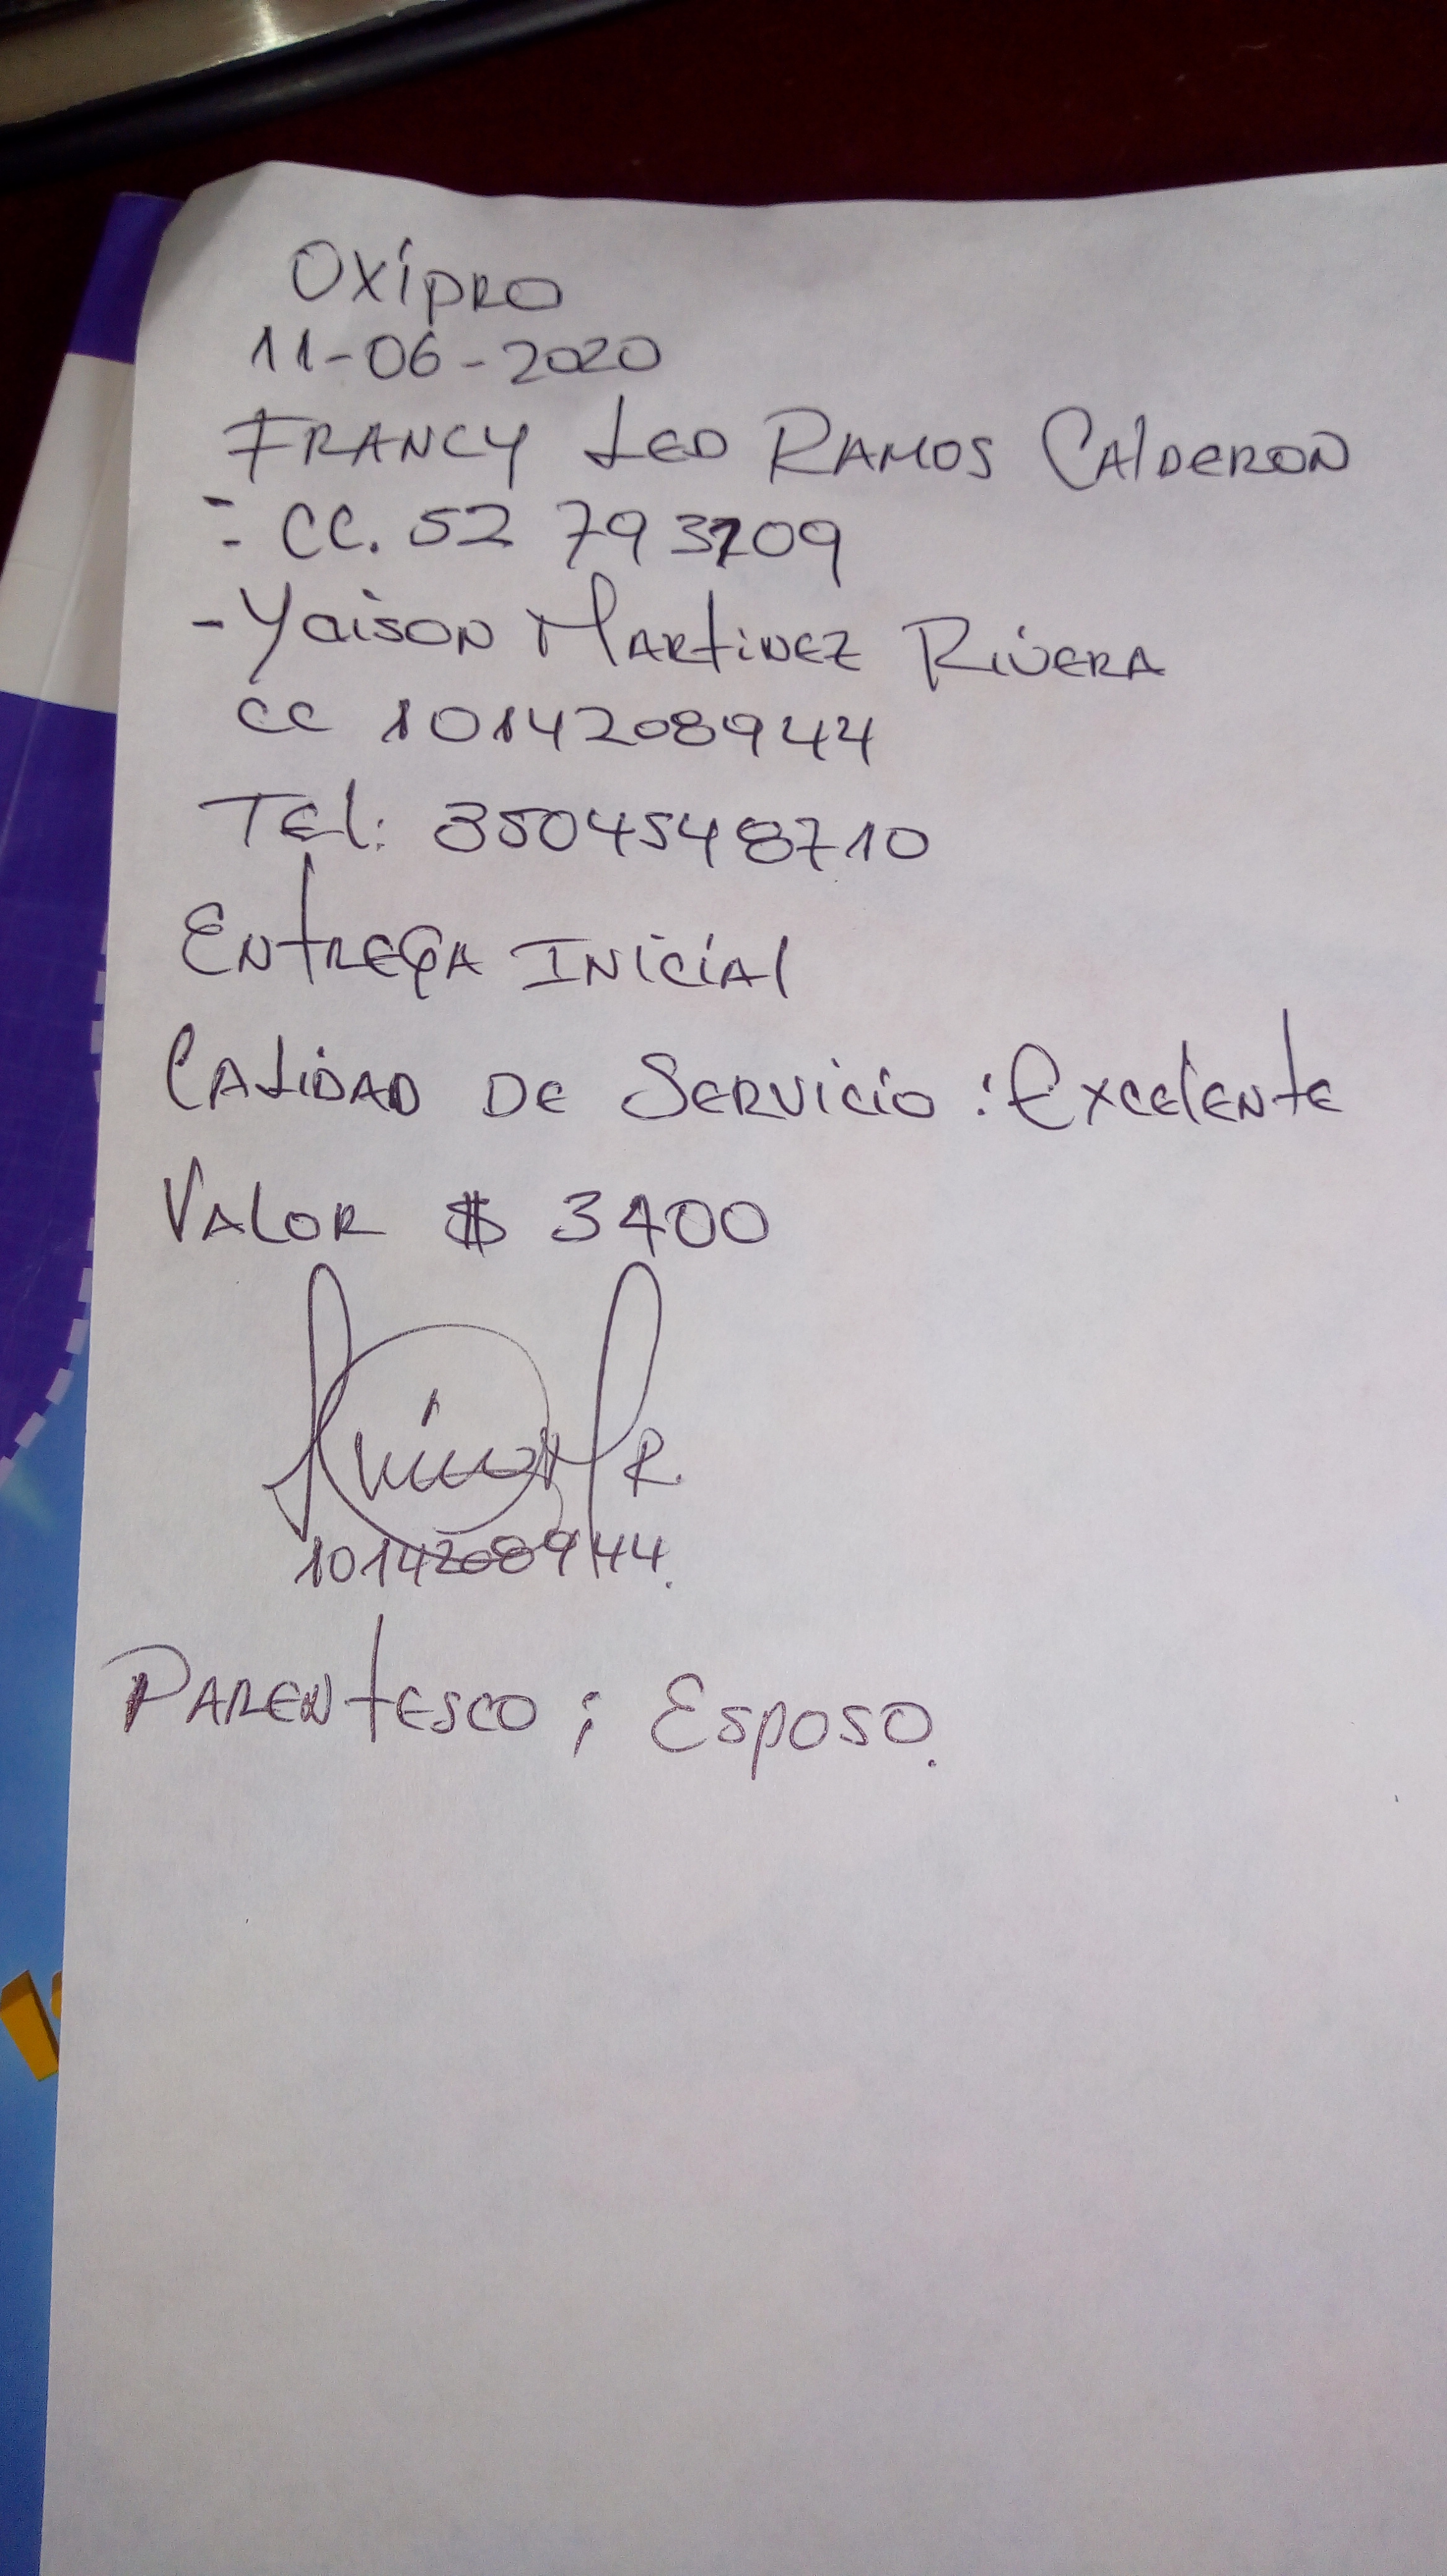 Oxipro
11-06-2020
FRANCY LED RAMOS CALDERON
- CC. 52 793209
- Yaison MARTINEZ RIVERA
CC 1014208944
Tel: 35045448710
ENTREGA INICIAL
CALIDAD DE SERVICIO: Excelente
VALOR $ 3400
1014208944.
PARENTESCO: ESPOSO.